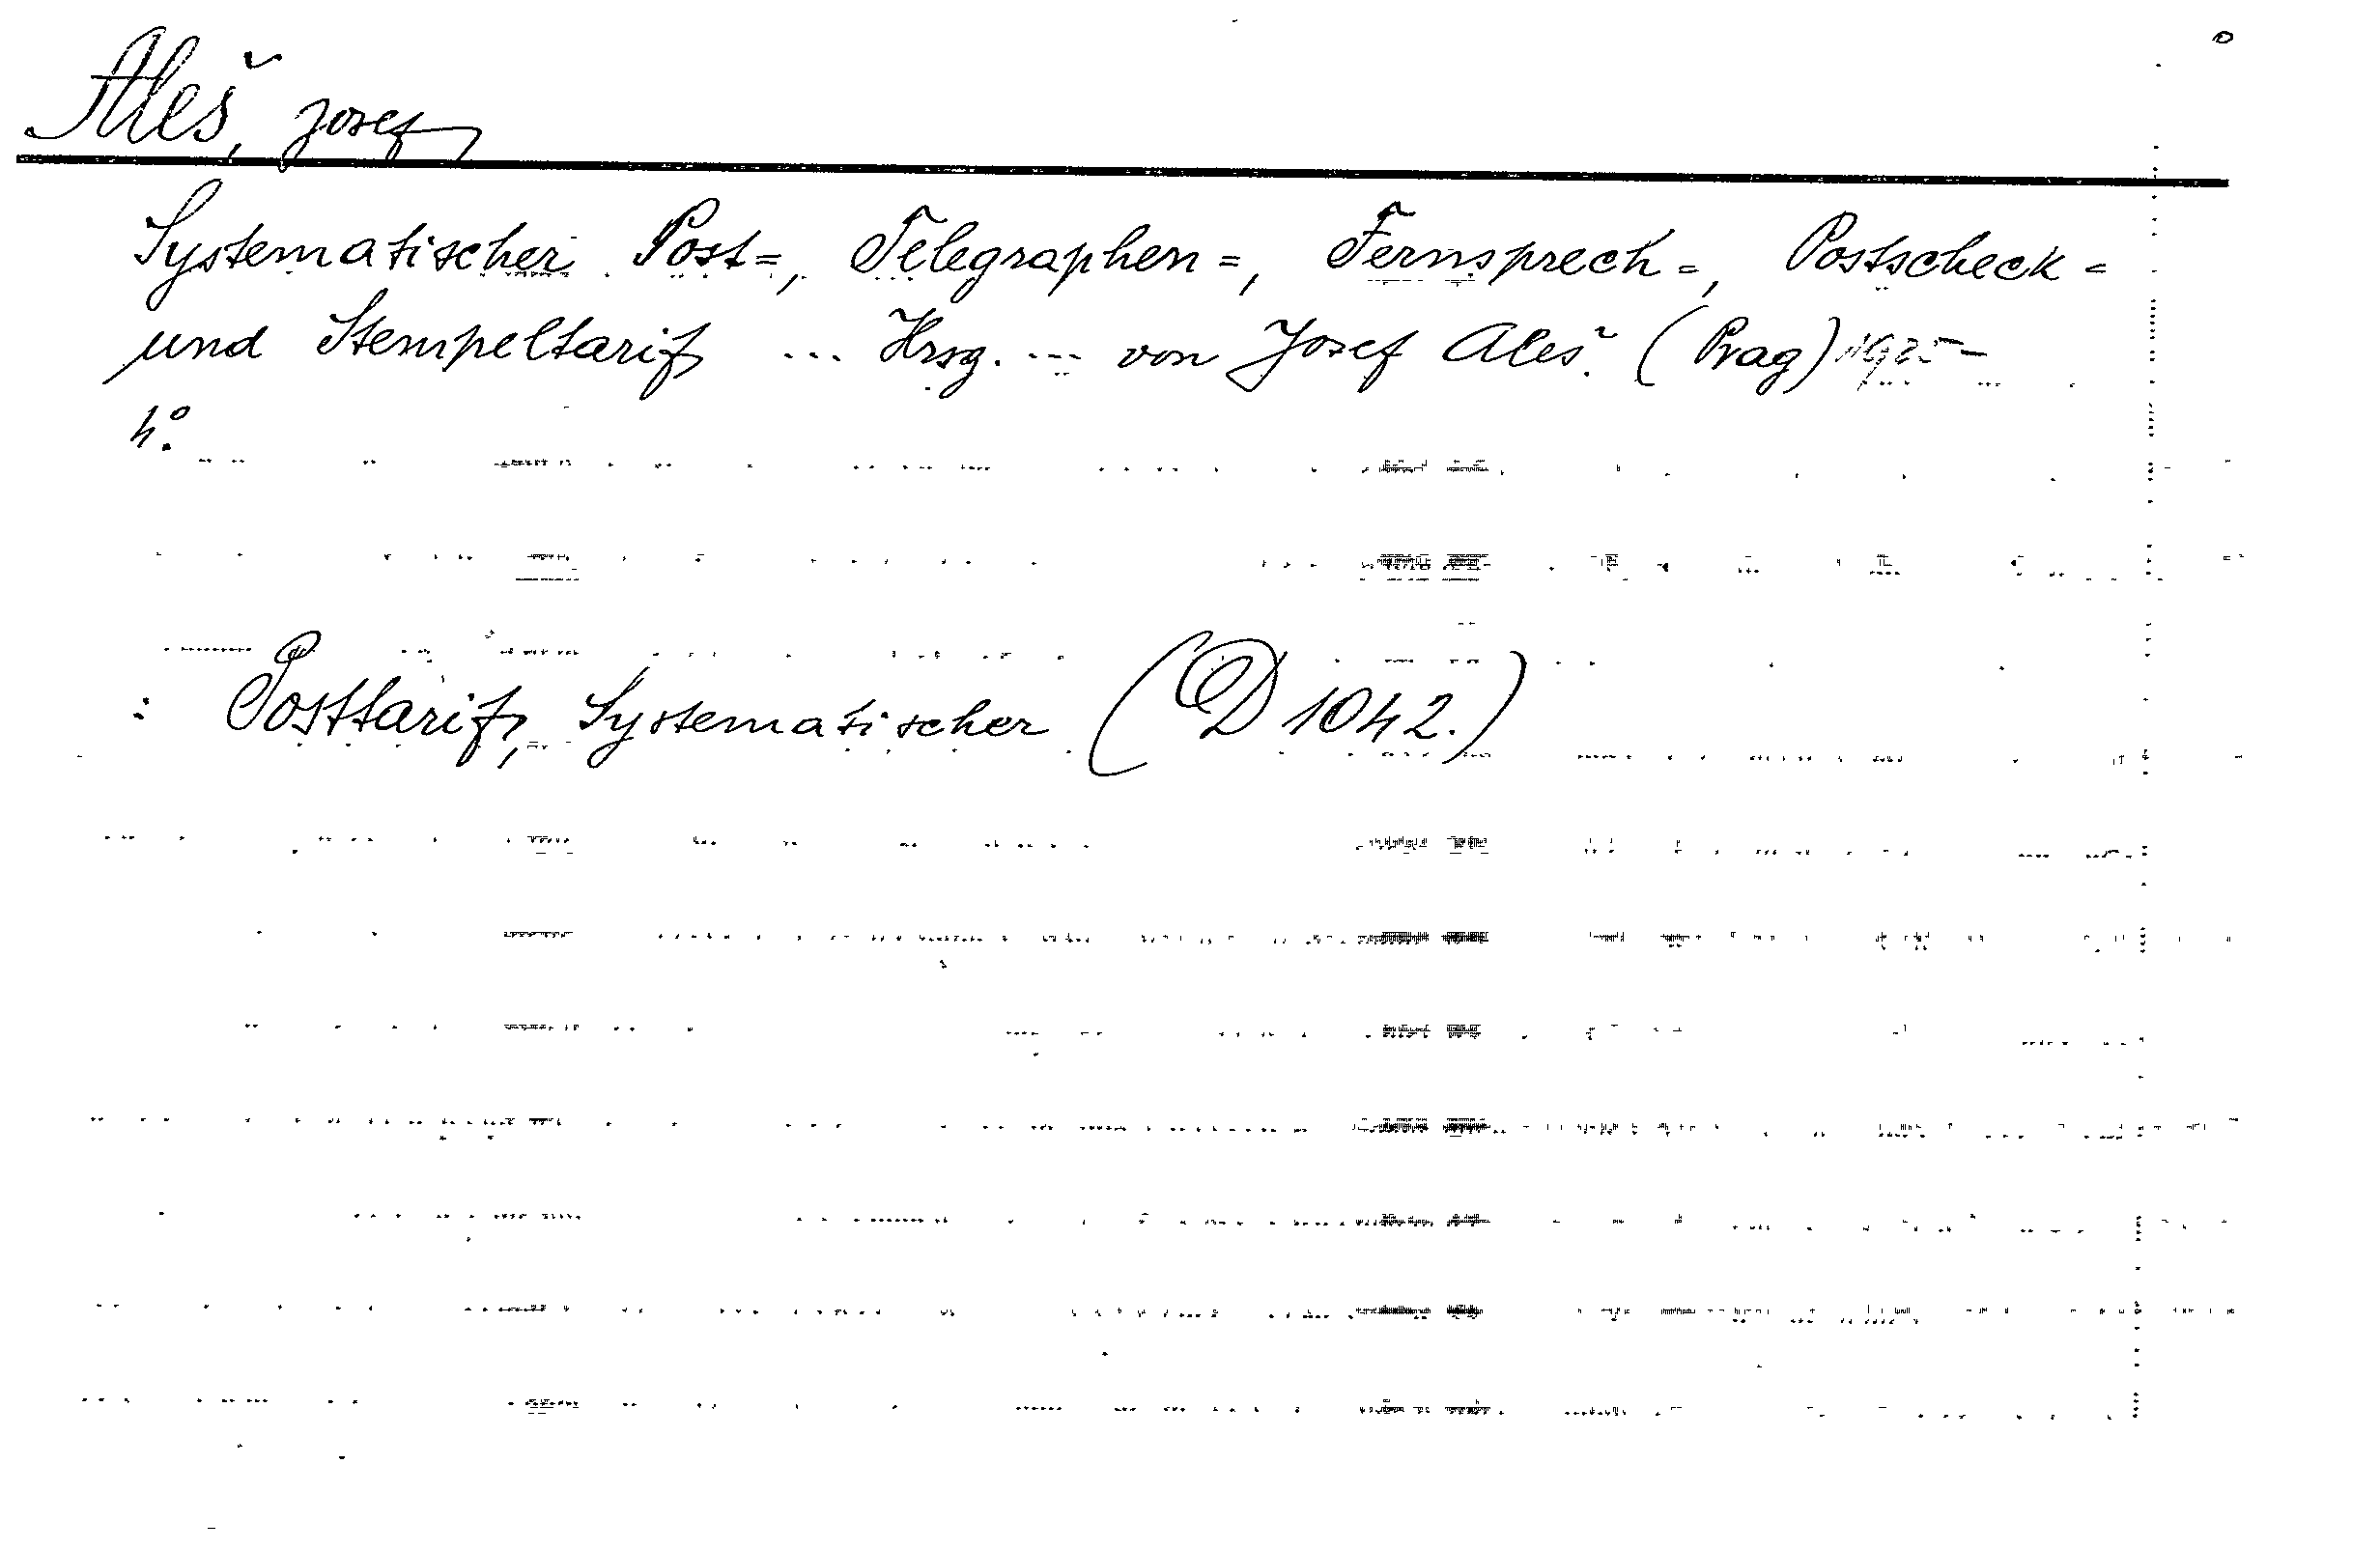 Aleš, Josef
Systematischer Post=, Telegraphen=, Fernsprech=, Postscheck=
und Stempeltarif ... Hrsg. ... von Josef Aleš. (Prag) 1925-
4°.
: Posttarif, Systematischer (D 1042.)